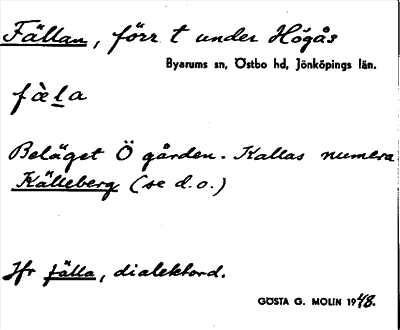 Fällan, förr t under Högås
Byarums sn, Östbo hd, Jönköpings län.
fàla
Beläget Ö gården. Kallas numera
Källeberg (se d.o.)
Jfr fälla, dialektord.
GÖSTA G. MOLIN 1948.